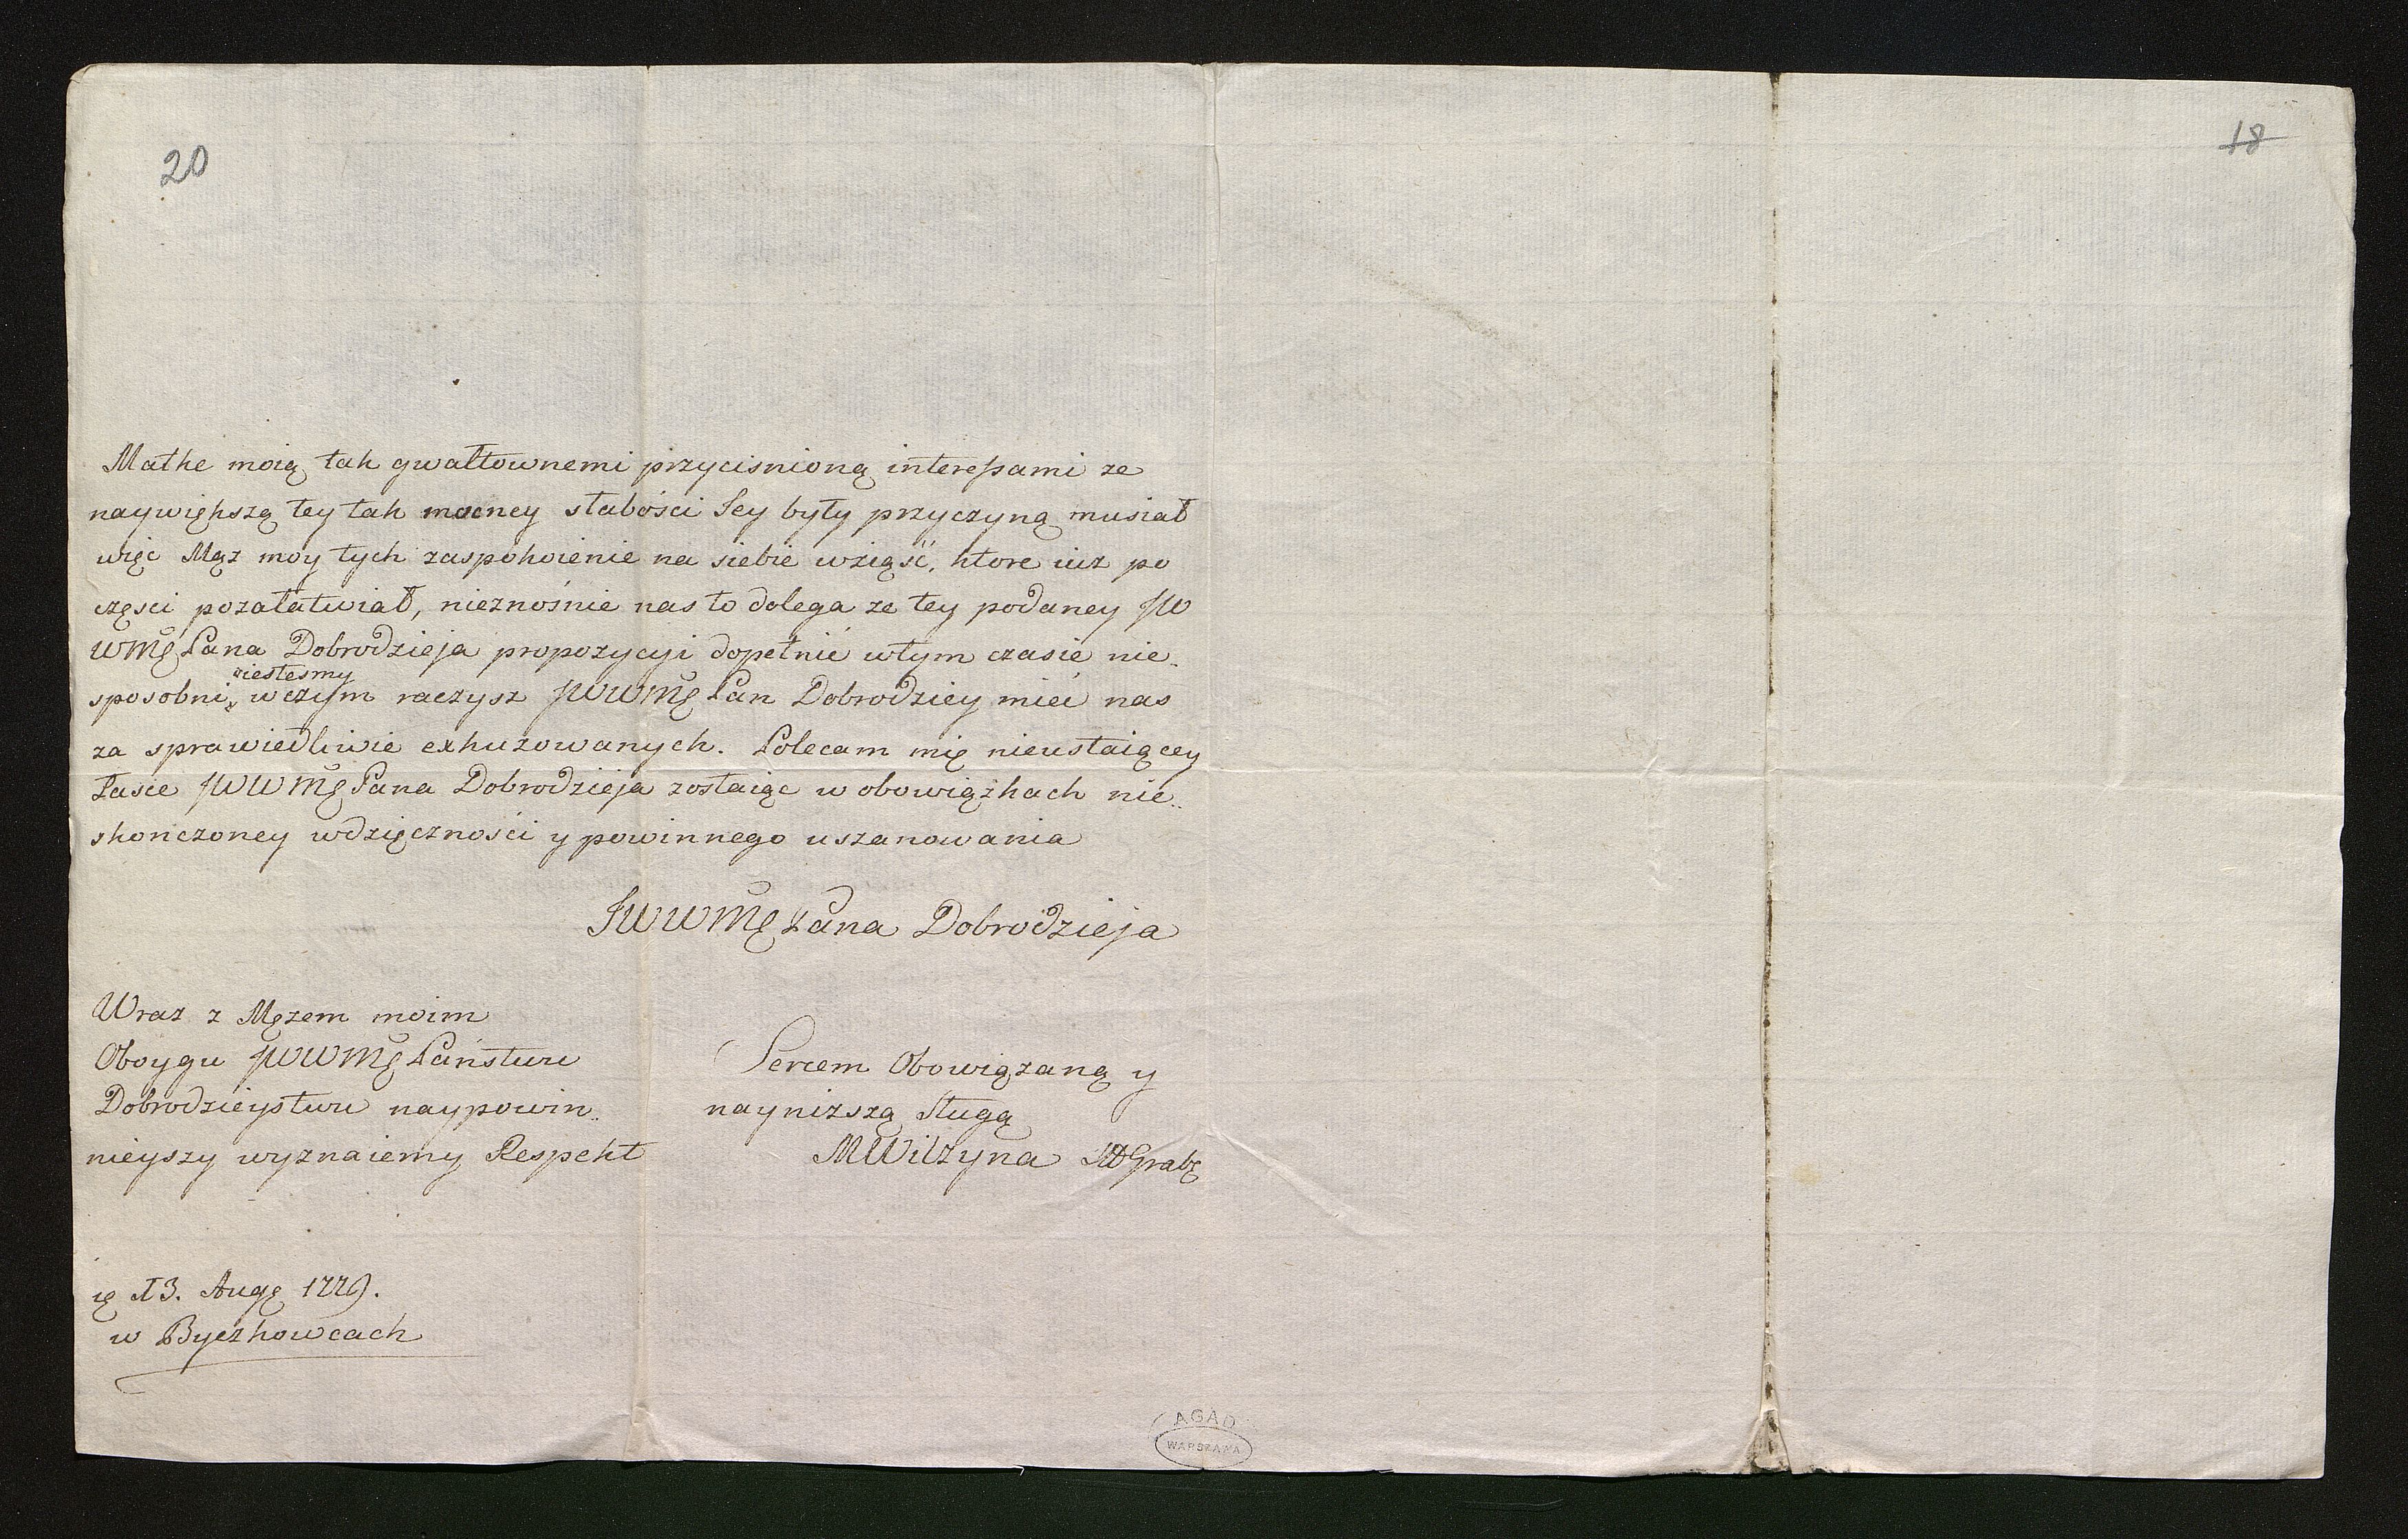 20
18
Matke moią tak gwałtownemi przycisnioną interessami ze
naywiększą tey tak mocney słabości Jey były przyczyną musiał
więc Mąz moy tych zaspokoienie na siebie wziąść, ktore iuz po
częsci pozałatwiał, nieznośnie nas to dolega ze tey podaney JW
WMę Pana Dobrodzieja propozycyi dopełnić wtym czasie nie-
sposobni iestesmy wczym raczysz JWWMę Pan Dobrodziey mieć nas
za sprawiedliwie exkuzowanych. Polecam mię nieustaiącey
Łasce JWWMę Pana Dobrodzieja zostaiąc w obowiązkach nie-
skonczoney wdzięczności y powinnego uszanowania
JWWMę Pana Dobrodzieja
Wraz z Męzem moim
Oboygu JWWMę Państwu
Dobrodzieystwu naypowin-
nieyszy wyznaiemy Respekt
Sercem Obowiązaną y
nayniższą sługą
MWilżyna
13. Augę 1779.
w Byczkowcach
AGAD
WARSZAWA